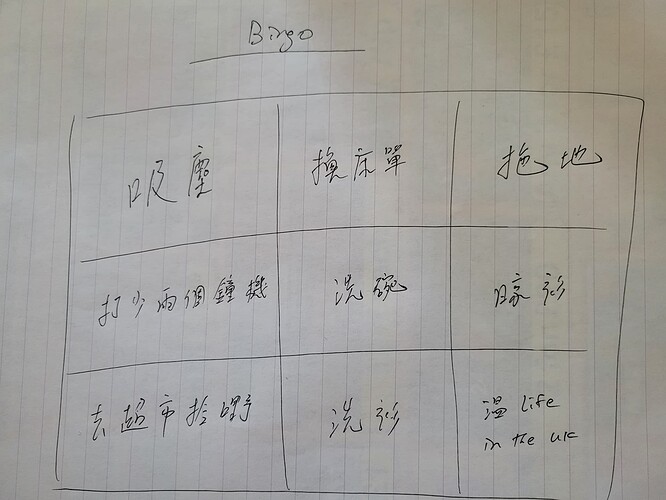 Bingo
吸塵
換床單
拖地
打少兩個鐘機
洗碗
㫰衫
去超市拎嘢
洗衫
溫 life
in the uk